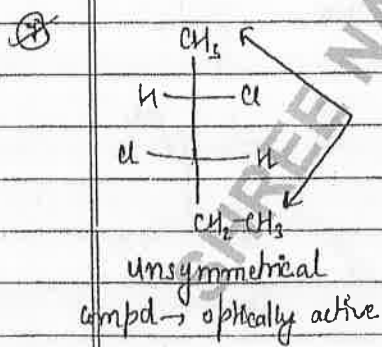 *
CH₃
H Cl
Cl H
CH₂-CH₃
unsymmetrical
compd → optically active
SHREE NA